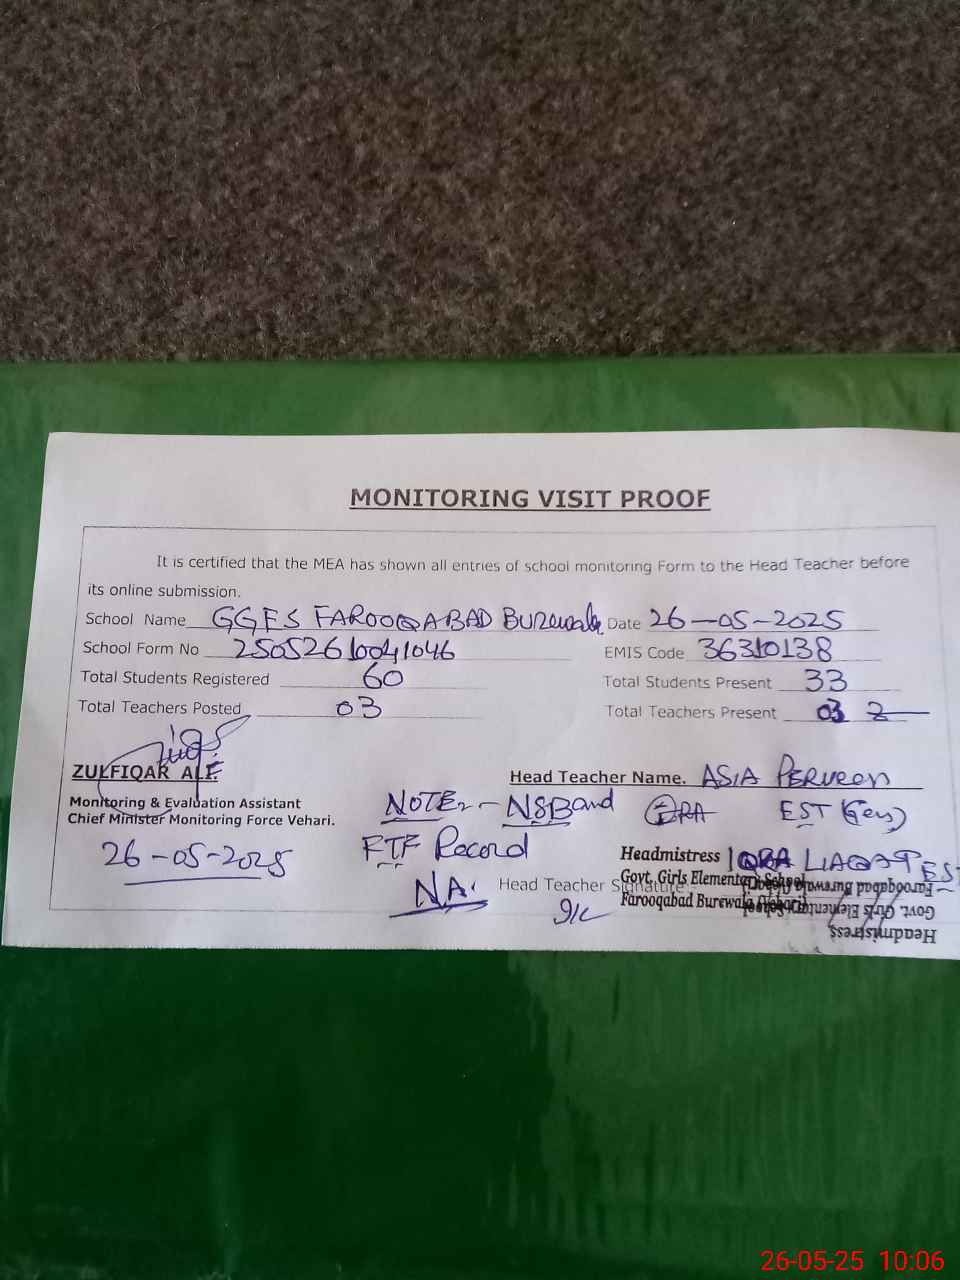 MONITORING VISIT PROOF
It is certified that the MEA has shown all entries of school monitoring Form to the Head Teacher before
its online submission.
School Name GGES FAROOQABAD BUREWALA Date 26-05-2025
School Form No 25052610041046 EMIS Code 36310138
Total Students Registered 60 Total Students Present 33
Total Teachers Posted 03 Total Teachers Present 03
ZULFIQAR ALI. Head Teacher Name. ASIA PERVEEN
Monitoring & Evaluation Assistant NOTE:- NSB and EST (Gen)
Chief Minister Monitoring Force Vehari.
26-05-2025 FTF Record Headmistress IQRA LIAQAT EST
Govt. Girls Elementary School
NA. Head Teacher Signature
Farooqabad Burewala
I/C
Farooqabad Burewala
Govt. Girls Elementary School
Headmistress
26-05-25 10:06